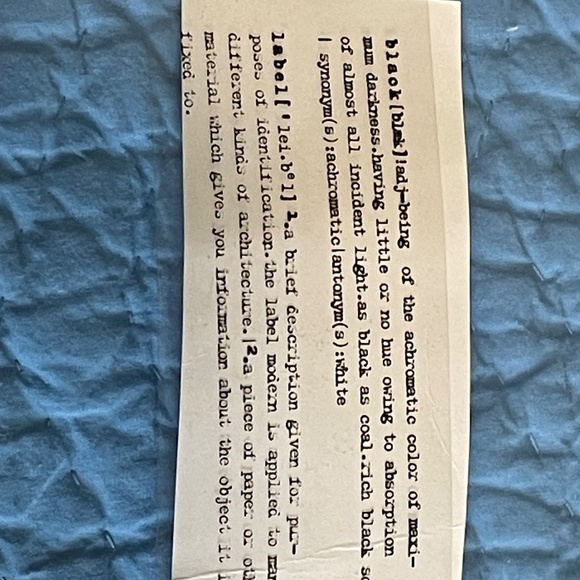 black[blæk]!adj-being of the achromatic color of maxi-
mum darkness.having little or no hue owing to absorption
of almost all incident light.as black as coal.rich black
| synonym(s):achromatic|antonym(s):white
label['lei.bᵉl] ².a brief description given for pur-
poses of identification.the label modern is applied to
different kinds of architecture.|².a piece of paper or
material which gives you information about the object it
fixed to.